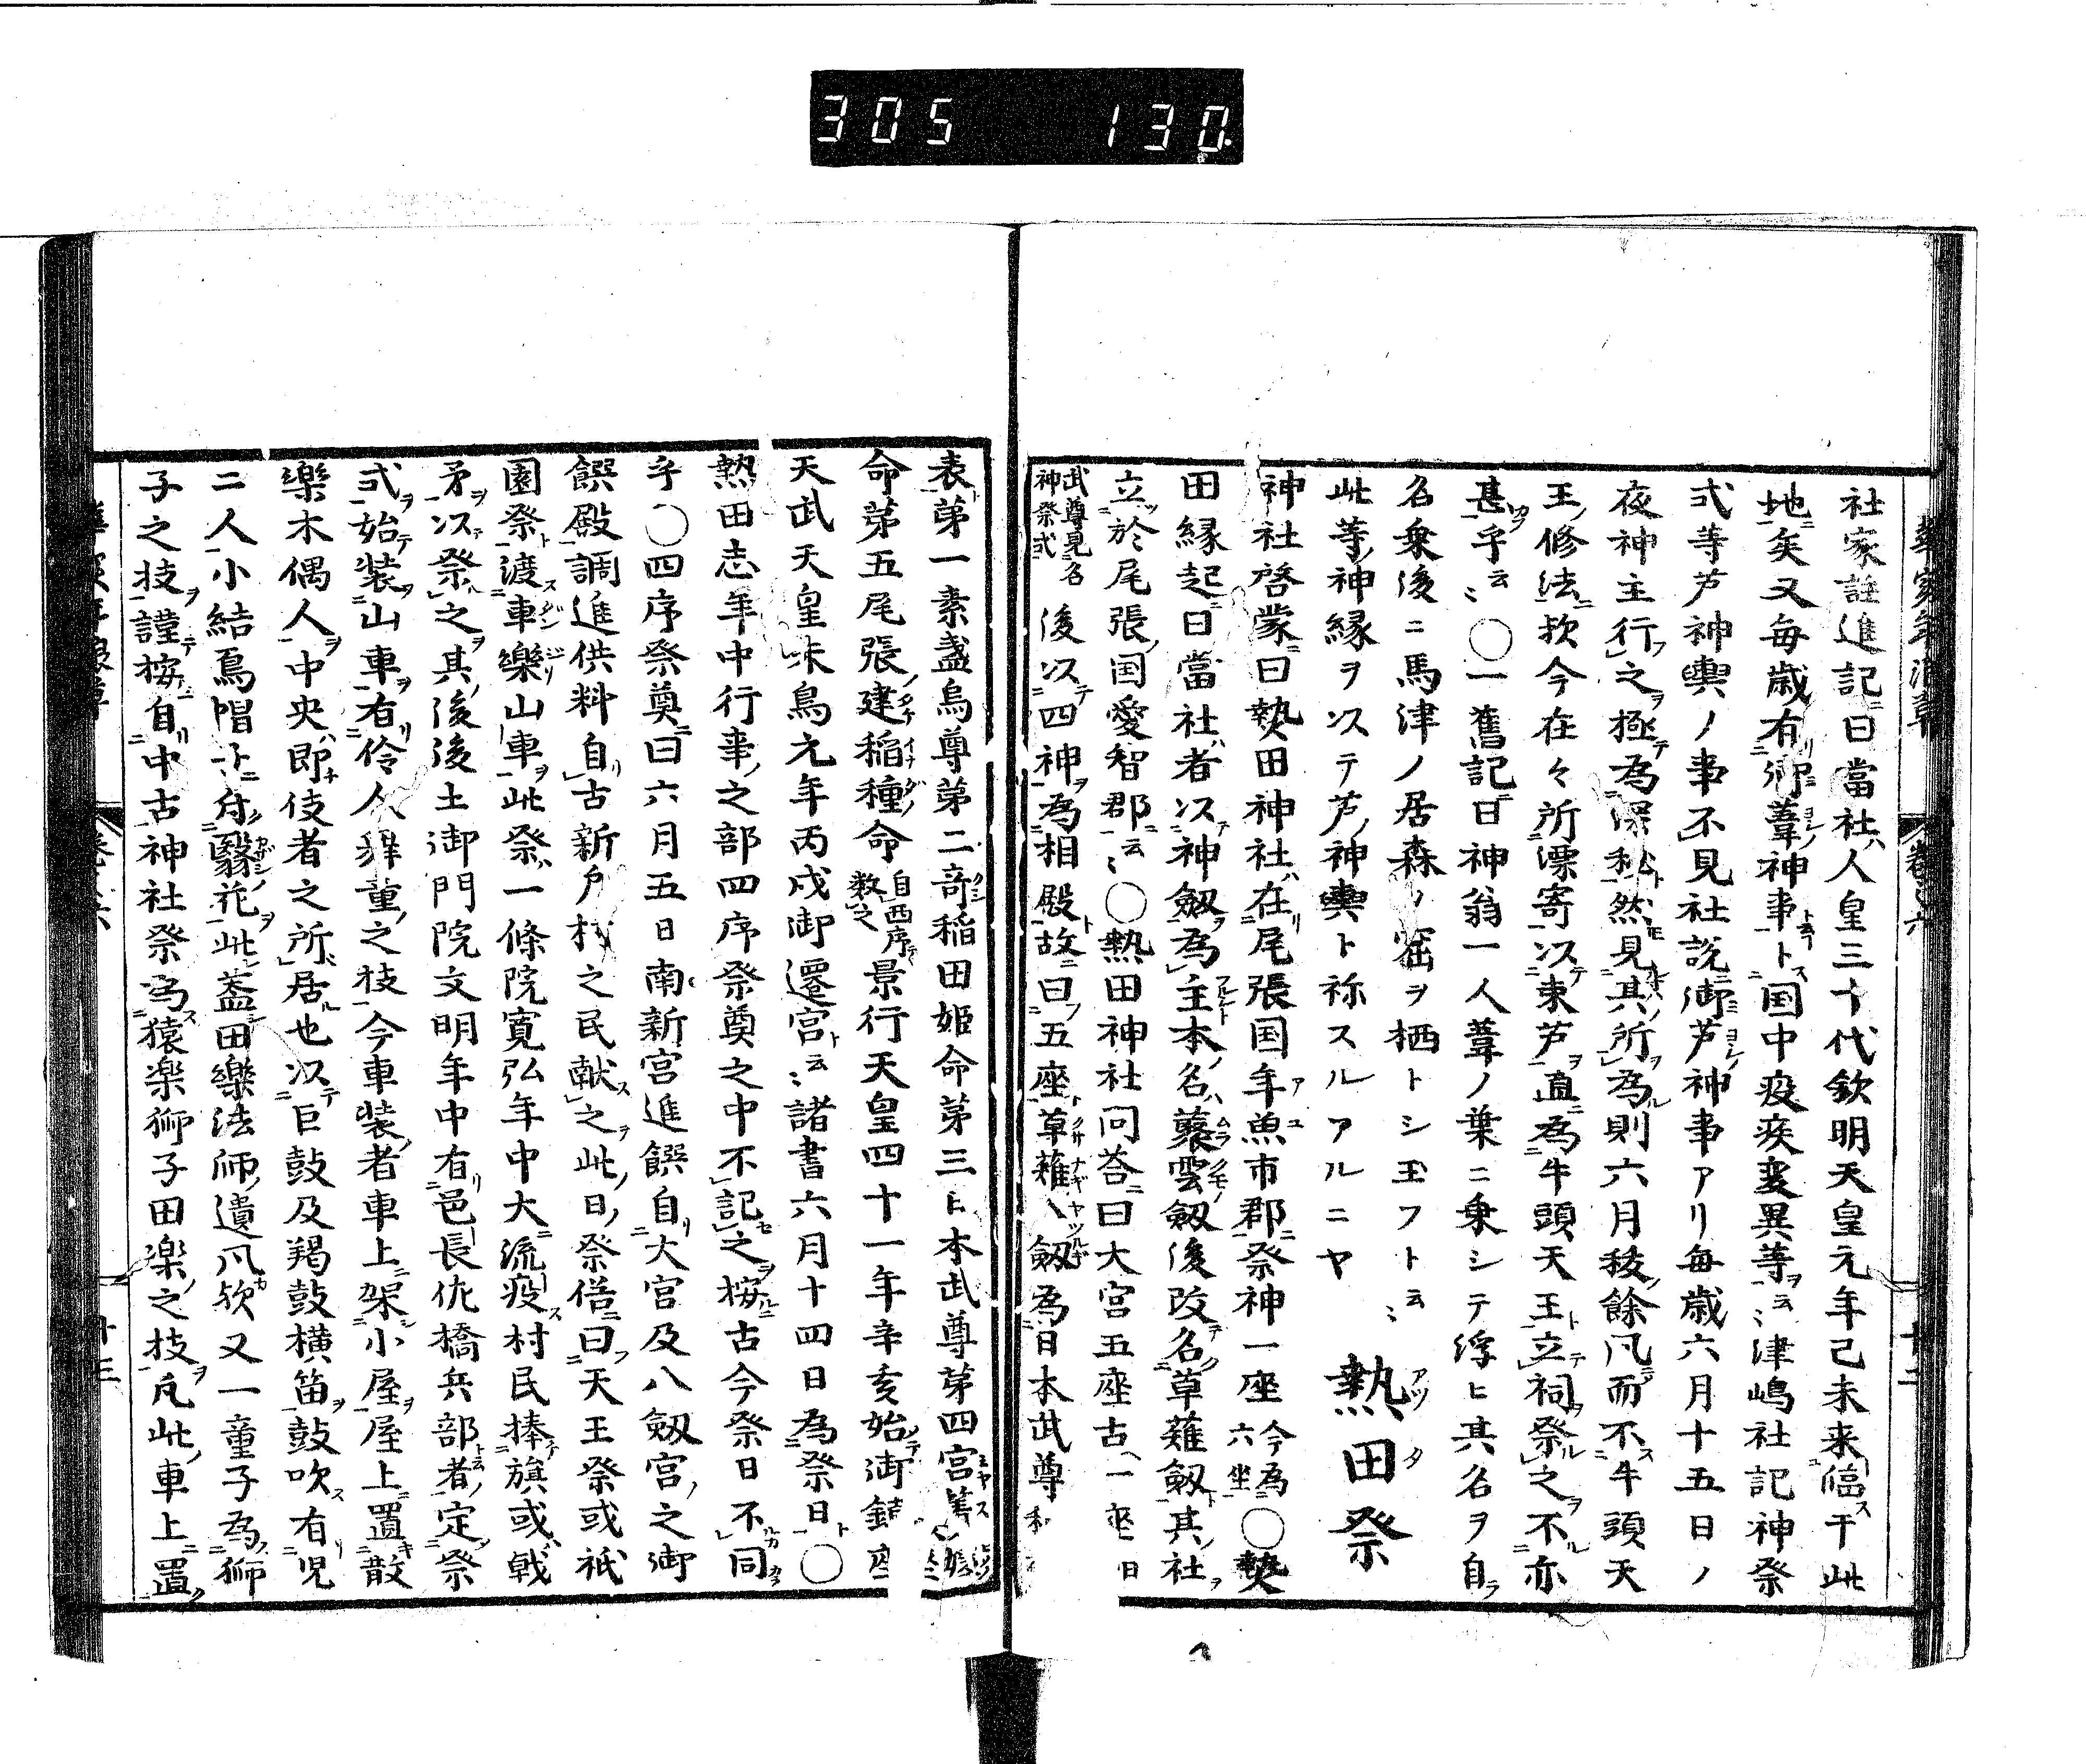 305 130
社家註進記曰當社人皇三十代欽明天皇元年己未来臨干此
地矣又毎歳有御葦神事ト国中疫疾変異等云〻津嶋社記神祭
式等芦神輿ノ事不見社説御芦神事アリ毎歳六月十五日ノ
夜神主行之極為深秘然見其所為則六月祓餘風而不牛頭天
王修法欤今在々所漂寄以束芦直為牛頭天王立祠祭之不亦
甚乎云〻〇一舊記曰神翁一人葦ノ葉ニ乗シテ浮ヒ其名ヲ自
名乗後ニ馬津ノ居森ノ窟ヲ栖トシ玉フト云〻
此等神縁ヲ以テ芦神輿ト祢スルアルニヤ 熱田祭
神社啓蒙曰熱田神社在尾張国年魚市郡祭神一座今為六坐〇熱
田縁起曰當社者以神劔為主本名䕺雲劔後改名草薙劔其社
立於尾張国愛智郡云〻〇熱田神社问荅曰大宮五座古一座日
武尊見名神祭式後以四神為相殿故曰五座草薙劔為日本武尊
表第一素盞烏尊第二竒稲田姫命第三日本武尊第四宮簀媛
命第五尾張建稲種命自西序数之景行天皇四十一年辛亥始御鎮座
天武天皇朱鳥元年丙戌御遷宮云〻諸書六月十四日為祭日〇
熱田志年中行事之部四序祭奠之中不記之按古今祭日不同
乎〇四序祭奠曰六月五日南新宮進饌自大宮及八劔宮之御
饌殿調進供料自古新戸村之民献之此日祭俗曰天王祭或祇
園祭渡車樂山車此祭一條院寛弘年中大流疫村民捧旗或戟
矛以祭之其後後土御門院文明年中有邑長佐橋兵部者定祭
式始装山車有伶人舞童之技今車装者車上架小屋屋上置散
樂木偶人中央即伎者之所居也以巨鼓及羯鼓横笛鼓吹有児
二人小結烏帽子舟翳花此蓋田樂法師遺风欤又一童子為獅
子之技謹按自中古神社祭為猿楽獅子田楽之技凢此車上置